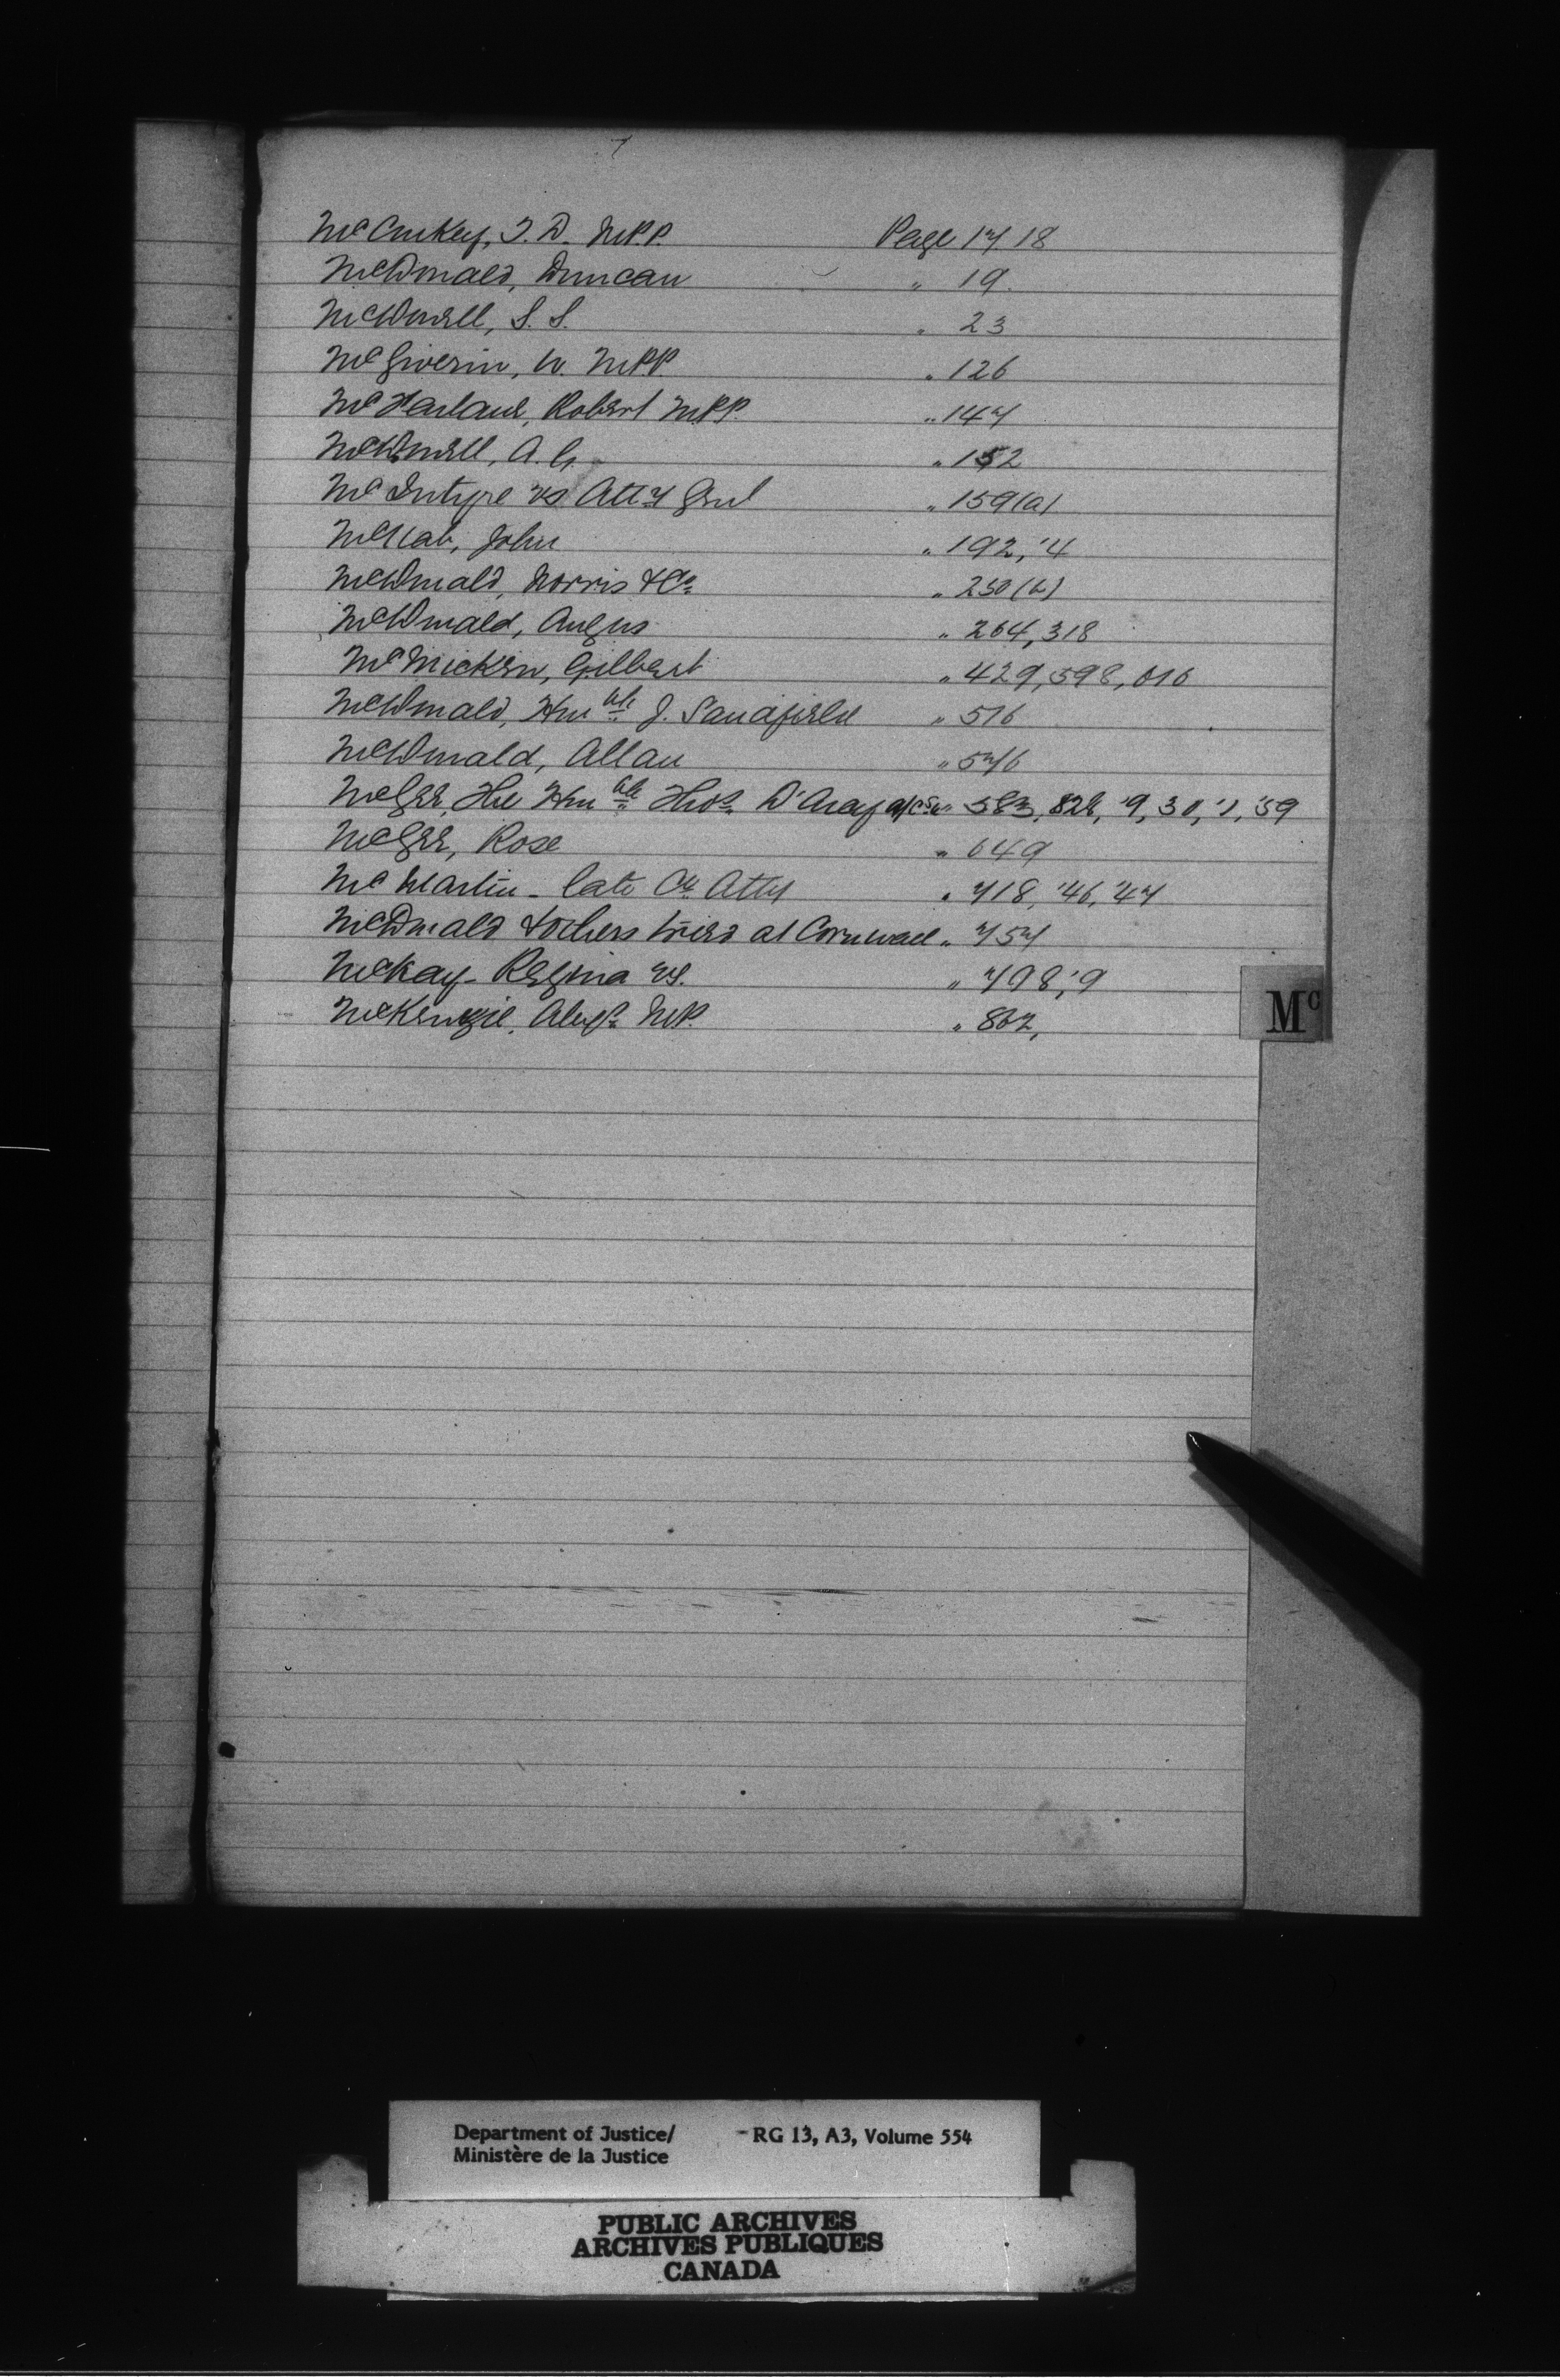 McConkey, T. D. M.P.P. Page 17 18
McDonald, Duncan " 19.
McDonell, S. S. " 23
McGiverin, W. MPP. " 126
McFarlane, Robert MPP. " 147
McDonell, A. G. " 152
McIntyre vs Atty Genl " 159(a)
McNab, John " 192, '4
McDonald, Morris & Co " 250(b)
McDonald, Angus " 264, 318
McMicken, Gilbert " 429, 598, 616
McDonald, Honble J. Sandfield " 516
McDonald, Allan " 576
McGee, The Honble Thos D'Arcy " 583, 828, '9, 30, '1, '59
McGee, Rose " 649
McMartin - late Co Atty " 718, '46, '47
McDonald & others tried at Cornwall " 757
McKay - Regina vs. " 798, '9
McKenzie, Alexr MP. " 862,
Mc
Department of Justice/ RG 13, A3, Volume 554
Ministère de la Justice
PUBLIC ARCHIVES
ARCHIVES PUBLIQUES
CANADA